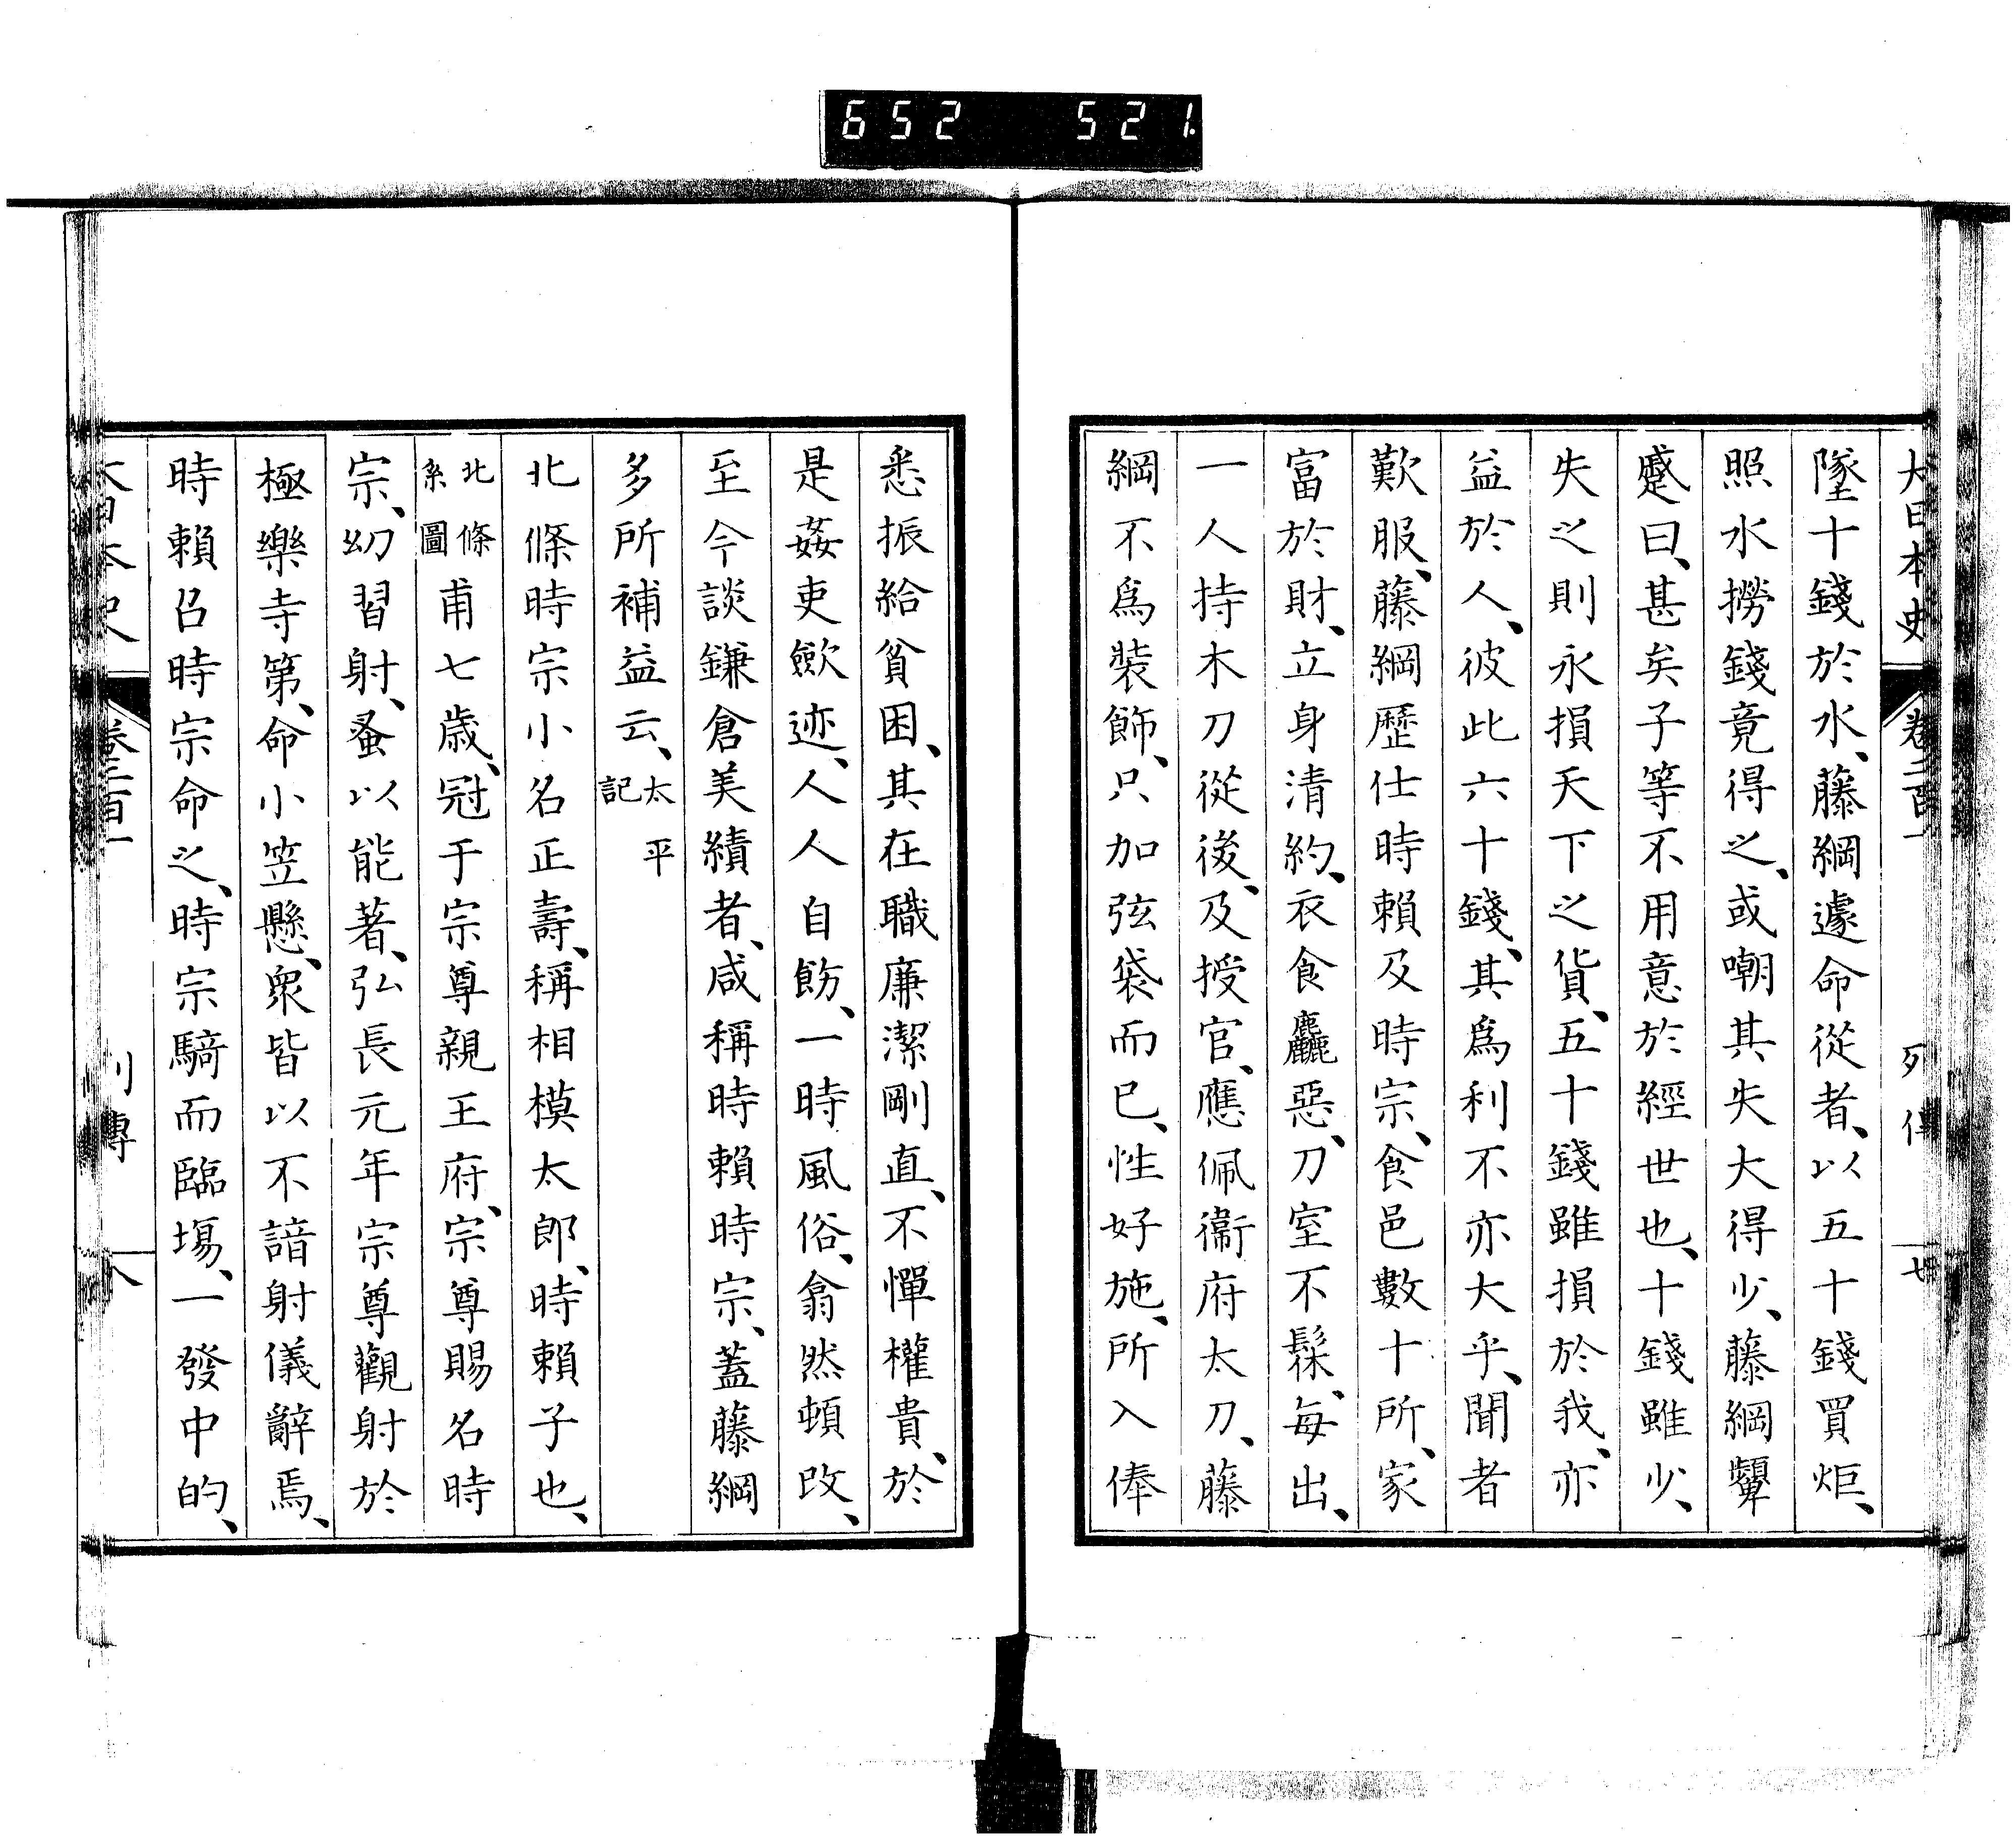 652 521.
大日本史 卷二百一 列傳 十七
墜十錢於水、藤綱遽命從者、以五十錢買炬、
照水撈錢竟得之、或嘲其失大得少、藤綱顰
蹙曰、甚矣子等不用意於經世也、十錢雖少、
失之則永損天下之貨、五十錢雖損於我、亦
益於人、彼此六十錢、其爲利不亦大乎、聞者
歎服、藤綱歷仕時賴及時宗、食邑數十所、家
富於財、立身清約、衣食麤惡、刀室不髹、每出、
一人持木刀從後、及授官、應佩衞府太刀、藤
綱不爲裝飾、只加弦袋而已、性好施、所入俸
悉振給貧困、其在職廉潔剛直、不憚權貴、於
是姦吏歛迹、人人自飭、一時風俗、翕然頓改、
至今談鎌倉美績者、咸稱時賴時宗、蓋藤綱
多所補益云、太平記
北條時宗小名正壽、稱相模太郎、時賴子也、
北條系圖甫七歲、冠于宗尊親王府、宗尊賜名時
宗、幼習射、蚤以能著、弘長元年宗尊觀射於
極樂寺第、命小笠懸、衆皆以不諳射儀辭焉、
時賴召時宗命之、時宗騎而臨場、一發中的、
大日本史 卷二百一 列傳 十八